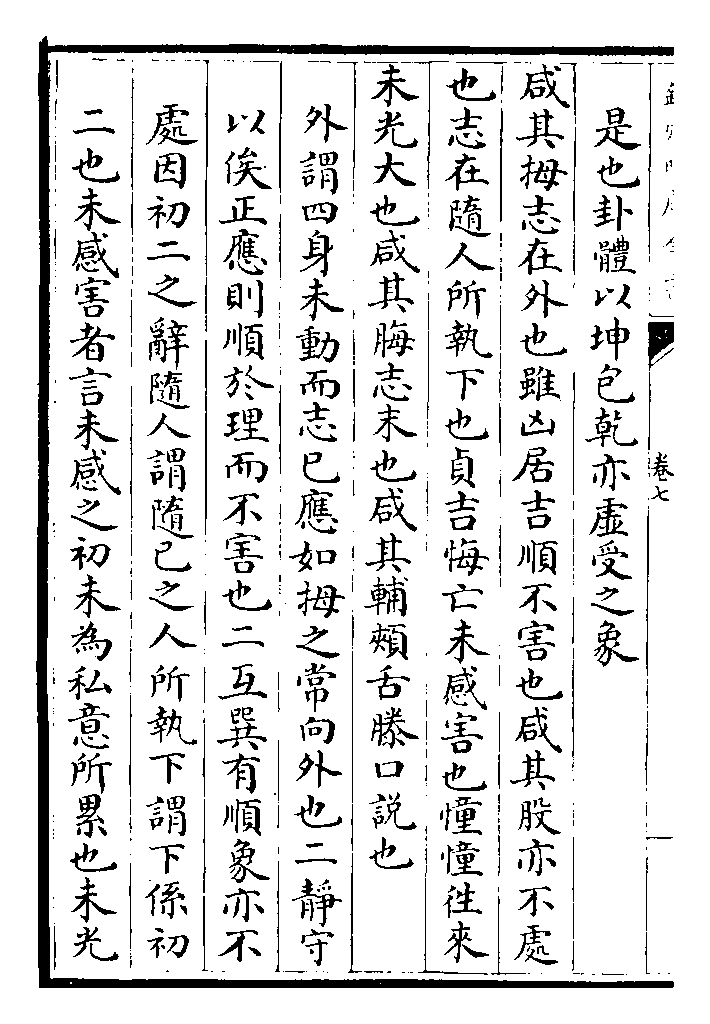 欽定四庫全書
卷七
是也卦體以坤包乾亦虛受之象
咸其拇志在外也雖凶居吉順不害也咸其股亦不處
也志在隨人所執下也貞吉悔亡未感害也憧憧往來
未光大也咸其脢志末也咸其輔頰舌滕口說也
外謂四身未動而志已應如拇之常向外也二靜守
以俟正應則順於理而不害也二互巽有順象亦不
處因初二之辭隨人謂隨已之人所執下謂下係初
二也未感害者言未感之初未為私意所累也未光